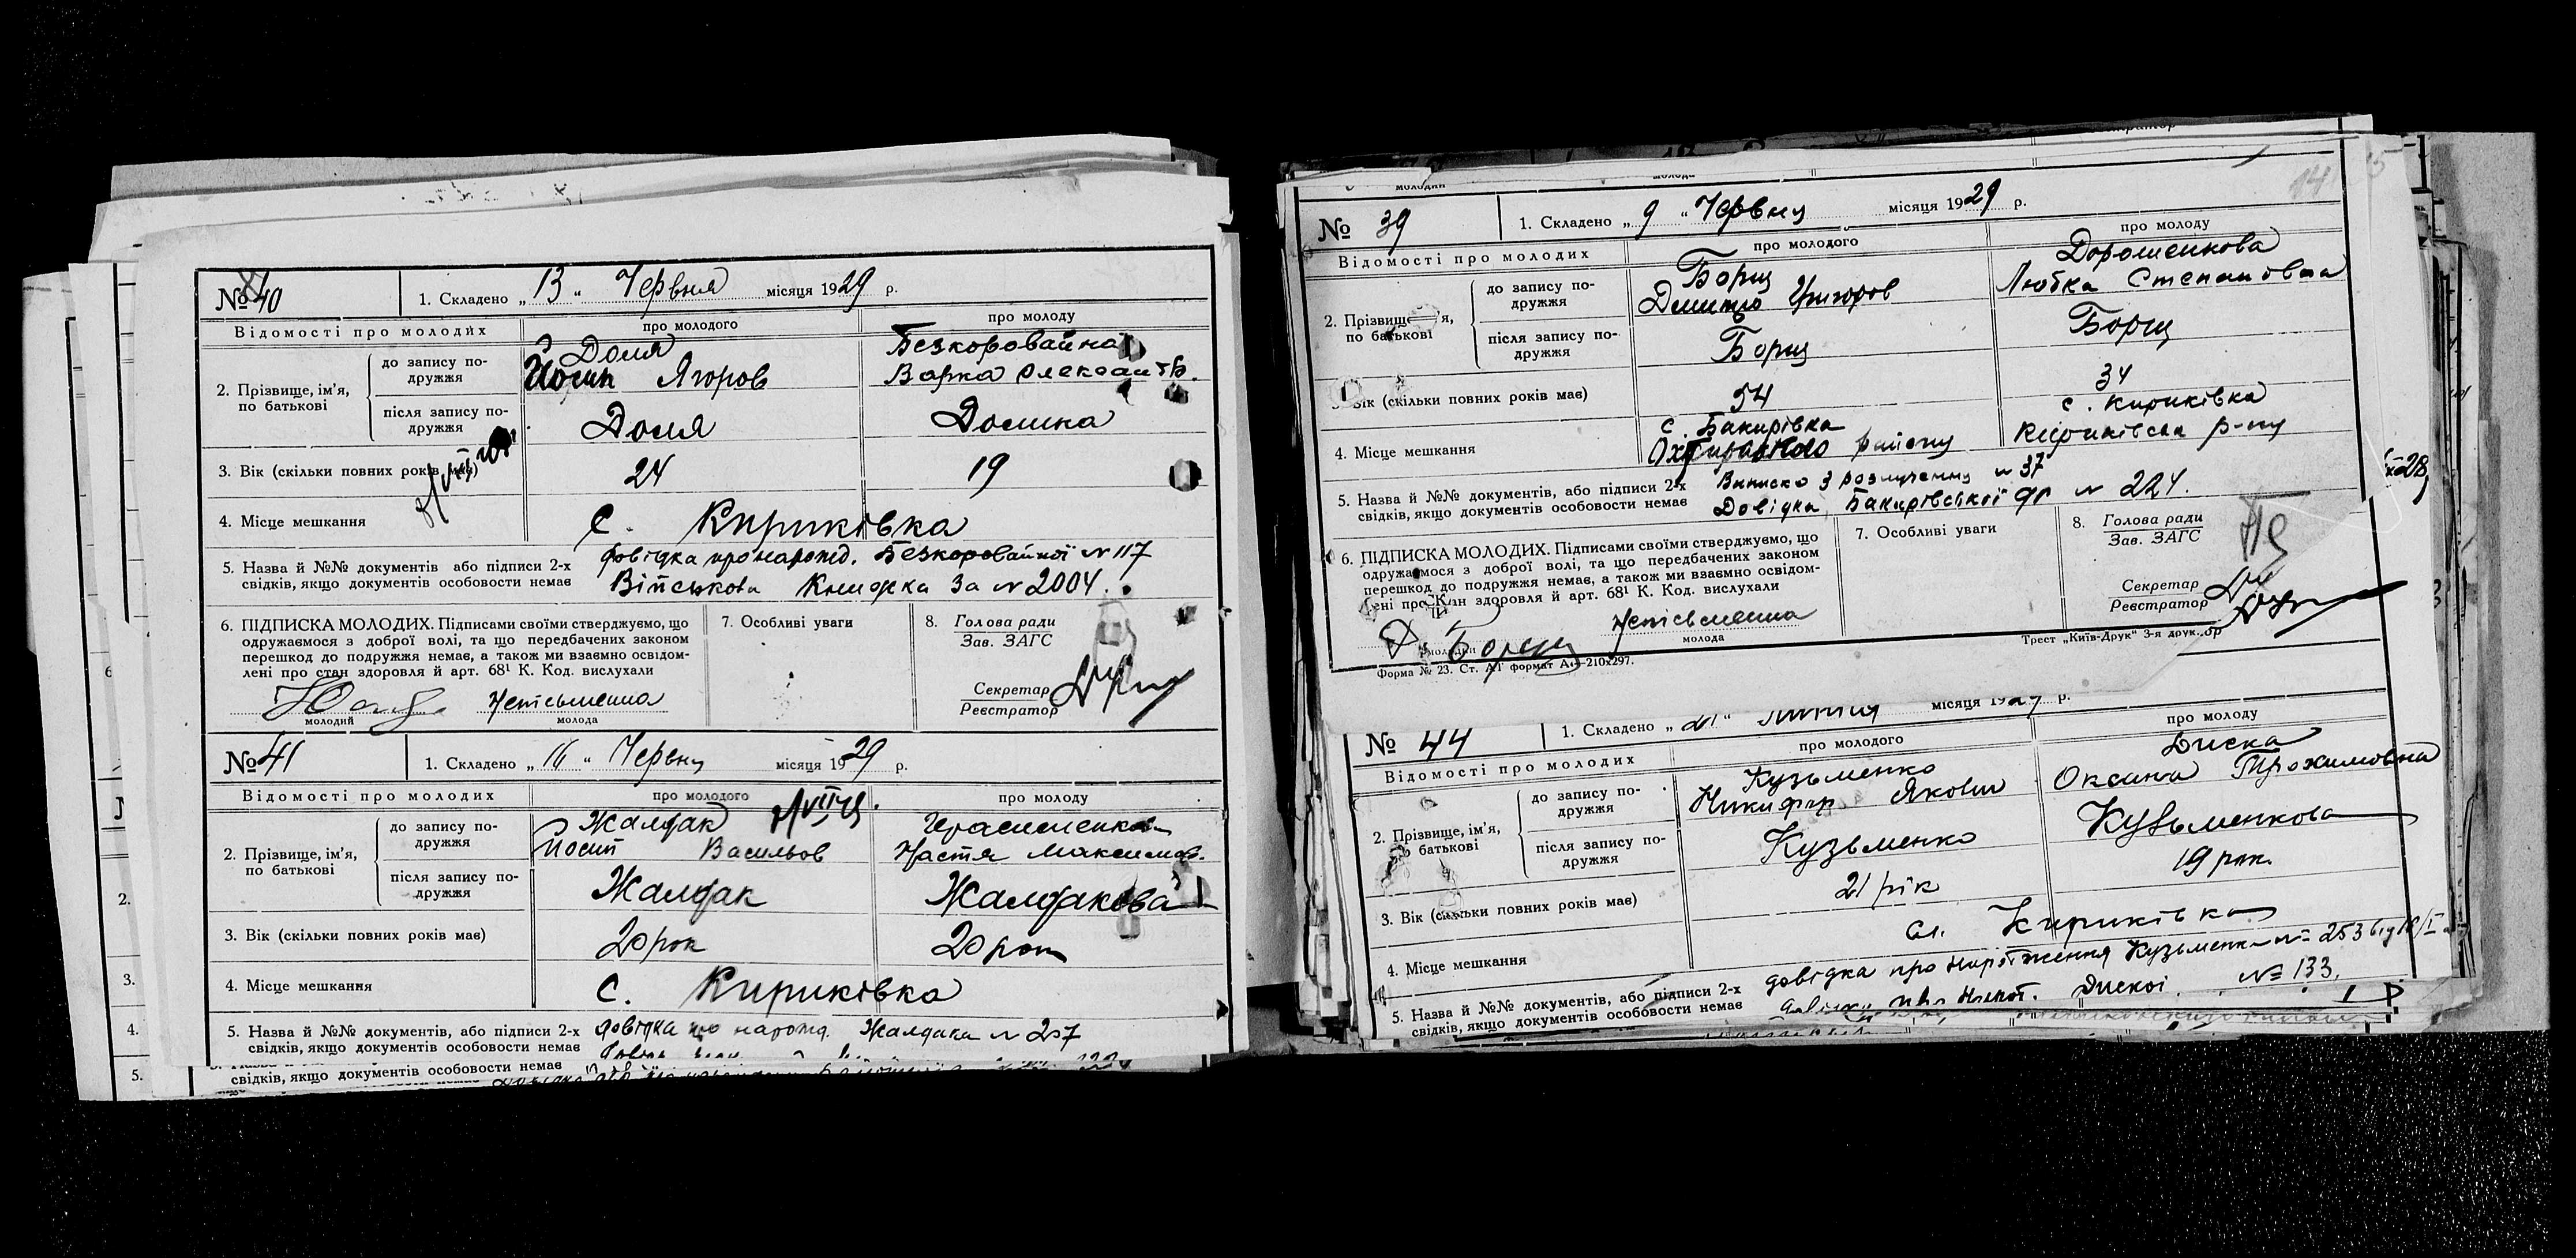 № 40
1. Складено „ 13 “ Червня місяця 1929 р.
Відомості про молодих
про молодого
про молоду
2. Прізвище, ім’я, по батькові
до запису по-
дружжя
Доля
Йосип Ягоров
Безкоровайна
Варка Олександ
після запису по-
дружжя
Доля
Долина
3. Вік (скільки повних років має)
24
19
4. Місце мешкання
С. Кириківка
5. Назва й №№ документів або підписи 2-х
свідків, якщо документів особовости немає
Довідка про народ. Безкоровайної № 117
Військова Книжка за № 2004.
6. ПІДПИСКА МОЛОДИХ. Підписами своїми стверджуємо, що
одружаємося з доброї волі, та що передбачених законом
перешкод до подружжя немає, а також ми взаємно освідом-
лені про стан здоровля й арт. 68¹ К. Код. вислухали
Неписьменна
молодий
молода
7. Особливі уваги
8. Голова ради
Зав. ЗАГС
Секретар
Реєстратор
№ 41
1. Складено „ 16 “ Червня місяця 1929 р.
Відомості про молодих
про молодого
про молоду
2. Прізвище, ім’я,
по батькові
до запису по-
дружжя
Жалдак
Йосип Васильов
Герасименкова
Настя Максимов.
після запису по-
дружжя
Жалдак
Жалдакова
3. Вік (скільки повних років має)
20 рок
20 рок
4. Місце мешкання
С. Кириківка
5. Назва й №№ документів, або підписи 2-х
свідків, якщо документів особовости немає
довідка про народ. Жалдака № 207
свідків, якщо документів особовости немає
№ 39
1. Складено „ 9 “ Червня місяця 1929 р.
Відомості про молодих
про молодого
про молоду
2. Прізвище, ім’я,
по батькові
до запису по-
дружжя
Борщ
Дмитро Григоров
Дорошенкова
Любка Степановна
після запису по-
дружжя
Борщ
Борщ
3. Вік (скільки повних років має)
54
34
4. Місце мешкання
с. Бакирівка
Охтирського району
с. Кириківка
Кириківськ р-ну
5. Назва й №№ документів, або підписи 2-х
свідків, якщо документів особовости немає
Виписка з розлучення № 37
Довідка Бакирівської № 224.
6. ПІДПИСКА МОЛОДИХ. Підписами своїми стверджуємо, що
одружаємося з доброї волі, та що передбачених законом
перешкод до подружжя немає, а також ми взаємно освідом-
лені про стан здоровля й арт. 68¹ К. Код. вислухали
Д. Борщ
Неписьменна
молодий
молода
7. Особливі уваги
8. Голова ради
Зав. ЗАГС
Секретар
Реєстратор
Форма № 23. Ст. А4 формат А4—210x297.
Трест „Київ-Друк“ 3-я друк.
№ 44
1. Складено „ 21 “ Липня місяця 1929 р.
Відомості про молодих
про молодого
про молоду
2. Прізвище, ім’я,
по батькові
до запису по-
дружжя
Кузьменко
Никифір Якович
Диска
Оксана Трохимовна
після запису по-
дружжя
Кузьменко
Кузьменкова
3. Вік (скільки повних років має)
21 рік
19 рок.
4. Місце мешкання
сл. Кириківка
5. Назва й №№ документів, або підписи 2-х
свідків, якщо документів особовости немає
довідка про народження Кузьменка № 253 від
Дискої № 133.